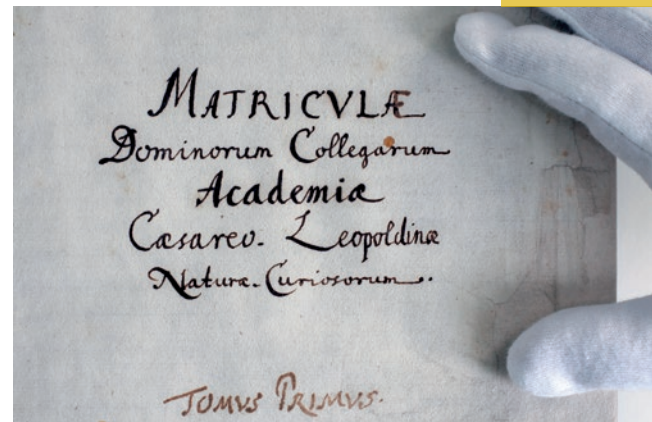 MATRICVLÆ
Dominorum Collegarum
Academiæ
Cæsareo- Leopoldinæ
Naturæ-Curiosorum.
TOMVS PRIMVS.